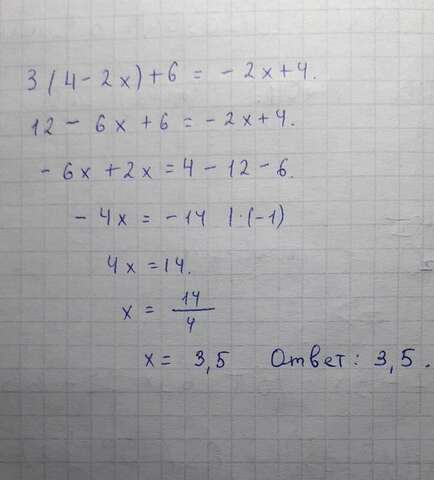 3(4-2x)+6=-2x+4.
12-6x+6=-2x+4.
-6x+2x=4-12-6.
-4x=-14 |·(-1)
4x=14.
x=14/4
x=3,5 Ответ: 3,5.